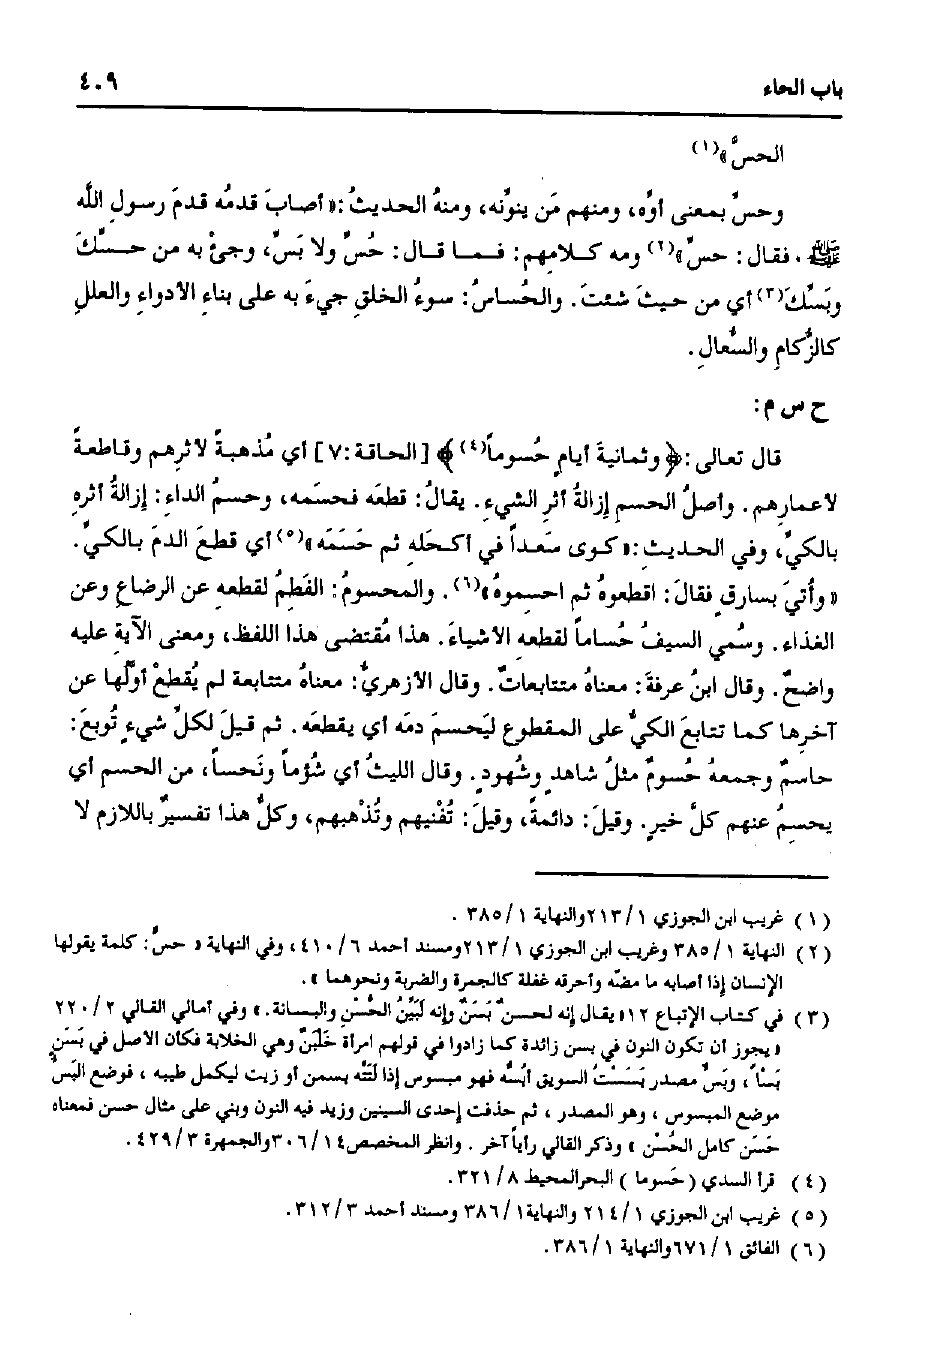 باب الحاء ٤٠٩
الحسُّ»(١)
وحسَّ بمعنى أوَّه، ومنهم مَن ينوِّنه، ومنهُ الحديثُ: «أصابَ قدمُه قدمَ رسولِ الله
ﷺ، فقال: حسَّ»(٢) ومه كلامهم: فما قال: حُسَّ ولا بَسَّ، وجئْ به من حسِّكَ
وبَسِّكَ(٣) أي من حيثُ شئتَ. والحُساسُ: سوءُ الخلقِ جيءَ به على بناءِ الأدواءِ والعللِ
كالزُّكامِ والسُّعالِ.
ح س م:
قال تعالى: ﴿وثمانيةَ أيامٍ حُسوماً(٤)﴾ [الحاقة: ٧] أي مُذهبةً لأثرهم وقاطعةً
لأعمارهم. وأصلُ الحسمِ إزالةُ أثرِ الشيءِ. يقالُ: قطعَه فحسَمه، وحسمُ الداء: إزالةُ أثرِه
بالكيِّ، وفي الحديث: «كوى سَعداً في أكحَلِه ثم حَسَمَه»(٥) أي قطعَ الدمَ بالكيِّ.
«وأُتيَ بسارقٍ فقالَ: اقطعوهُ ثم احسموهُ»(٦). والمحسومُ: الفَطِمُ لقطعه عن الرضاعِ وعن
الغذاء. وسُمي السيفُ حُساماً لقطعه الأشياءَ. هذا مُقتضى هذا اللفظ، ومعنى الآيةِ عليه
واضحٌ. وقال ابنُ عرفةَ: معناهُ متتابعاتٌ. وقال الأزهريُّ: معناهُ متتابعة لم يُقطعْ أوَّلُها عن
آخرِها كما تتابعَ الكيُّ على المقطوعِ ليَحسمَ دمَه أي يقطعَه. ثم قيلَ لكلِّ شيءٍ تُوبعَ:
حاسمٌ وجمعهُ حُسومٌ مثلُ شاهدٍ وشُهودٍ. وقال الليثُ أي شُؤماً ونَحساً، من الحسم أي
يحسِمُ عنهم كلَّ خيرٍ. وقيلَ: دائمةً، وقيلَ: تُفْنيهم وتُذْهبهم، وكلُّ هذا تفسيرٌ باللازم لا
(١) غريب ابن الجوزي ١/٢١٣ والنهاية ١/٣٨٥.
(٢) النهاية ١/٣٨٥ وغريب ابن الجوزي ١/٢١٣ ومسند أحمد ٦/٤١٠، وفي النهاية «حسِّ: كلمة يقولها
الإنسان إذا أصابه ما مضّه وأحرقه غفلة كالجمرة والضربة ونحوهما».
(٣) في كتاب الإتباع ١٢ «يقال إنه لحسنٌ بَسَنٌ وإنه لَبَيِّنُ الحُسْنِ والبسانة.» وفي أمالي القالي ٢/٢٢٠
«يجوز أن تكون النون في بسن زائدة كما زادوا في قولهم امرأة خَلْبَنٌ وهي الخلابة فكان الأصل في بَسَنٍ
بَسّاً، وبَسٌّ مصدر بَسَسْتُ السويق أبُسُّه فهو مبسوس إذا لَتَتَّه بسمن أو زيت ليكمل طيبه، فوضع البَسُّ
موضع المبسوس، وهو المصدر، ثم حذفت إحدى السينين وزيد فيه النون وبني على مثال حسن فمعناه
حَسَن كامل الحُسْن» وذكر القالي رأياً آخر. وانظر المخصص ١٤/٣٠٦ والجمهرة ٣/٤٢٩.
(٤) قرأ السدي (حَسوما) البحر المحيط ٨/٣٢١.
(٥) غريب ابن الجوزي ١/٢١٤ والنهاية ١/٣٨٦ ومسند أحمد ٣/٣١٢.
(٦) الفائق ١/٦٧١ والنهاية ١/٣٨٦.